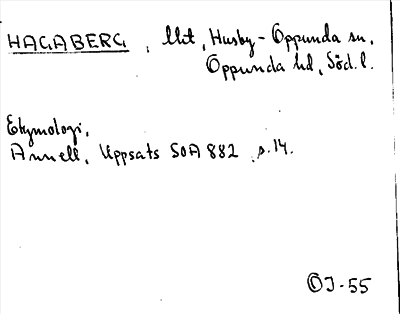 HAGABERG, Utt, Husby-Oppunda sn,
Oppunda hd, Söd. l.
Etymologi,
Annell, Uppsats SOA 882 s. 14.
OJ-55